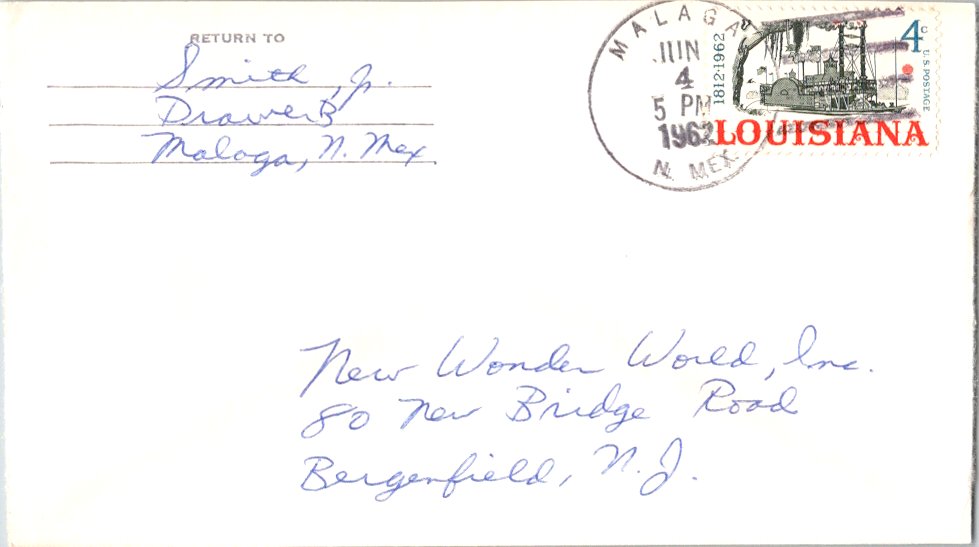 RETURN TO
Smith, Jr.
Drawer B
Malaga, N. Mex.
MALAGA,
JUN
4
5 PM
1962
N. MEX.
1812-1962
4c
U.S. POSTAGE
LOUISIANA
New Wonder World, Inc.
80 New Bridge Road
Bergenfield, N.J.